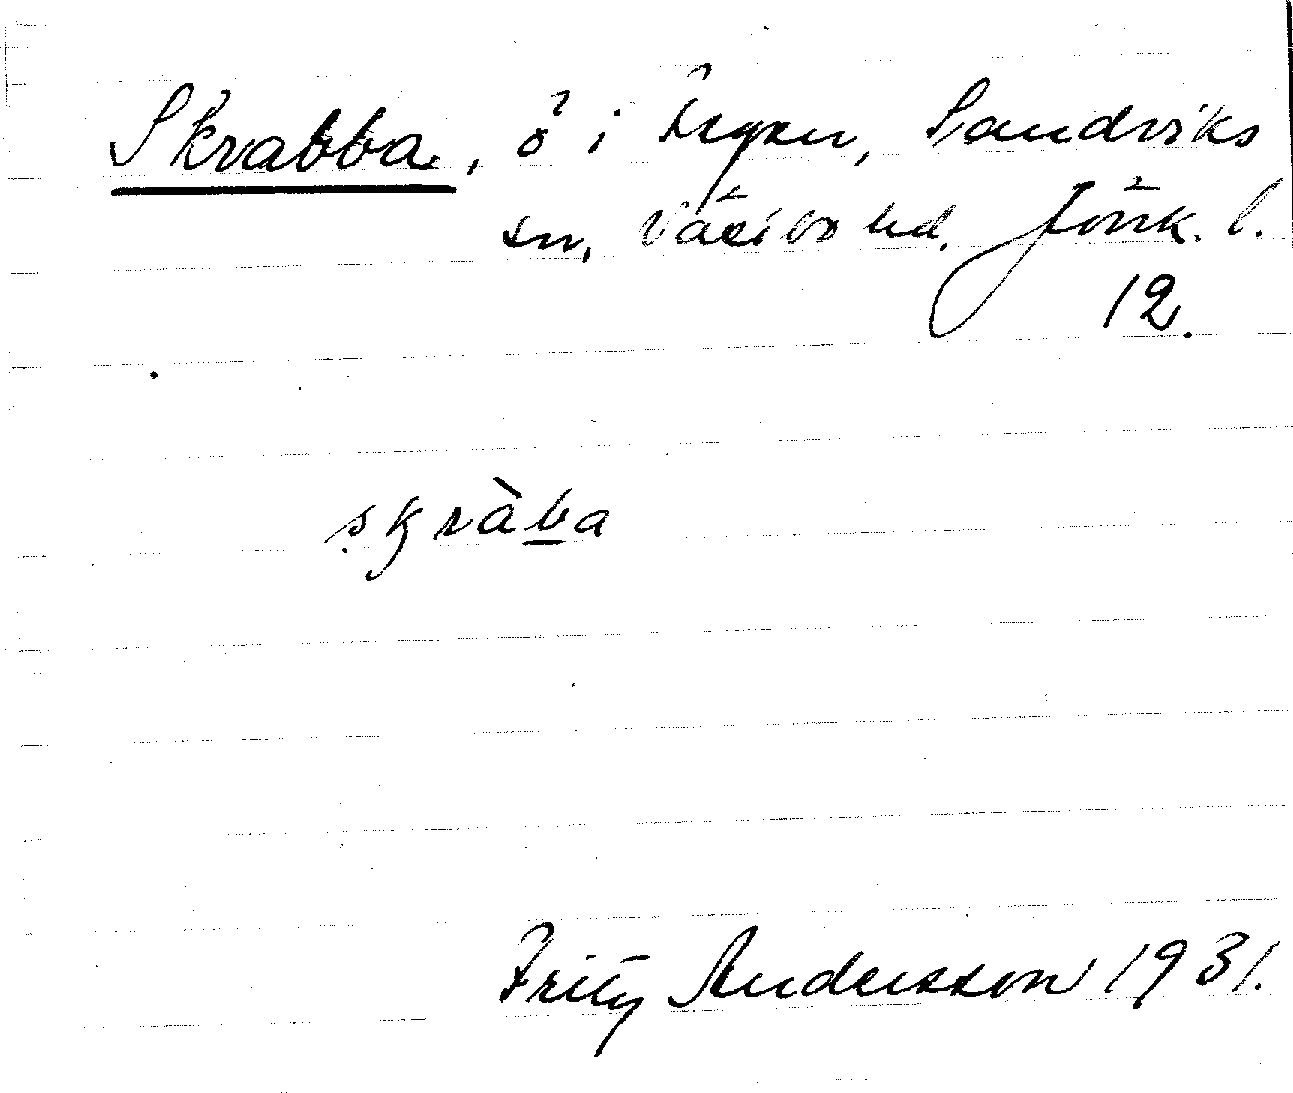 Skrabba, ö i Hären, Sandviks
sn, Västbo hd. Jönk. l.
12.
skràba
Fritz Andersson 1931.